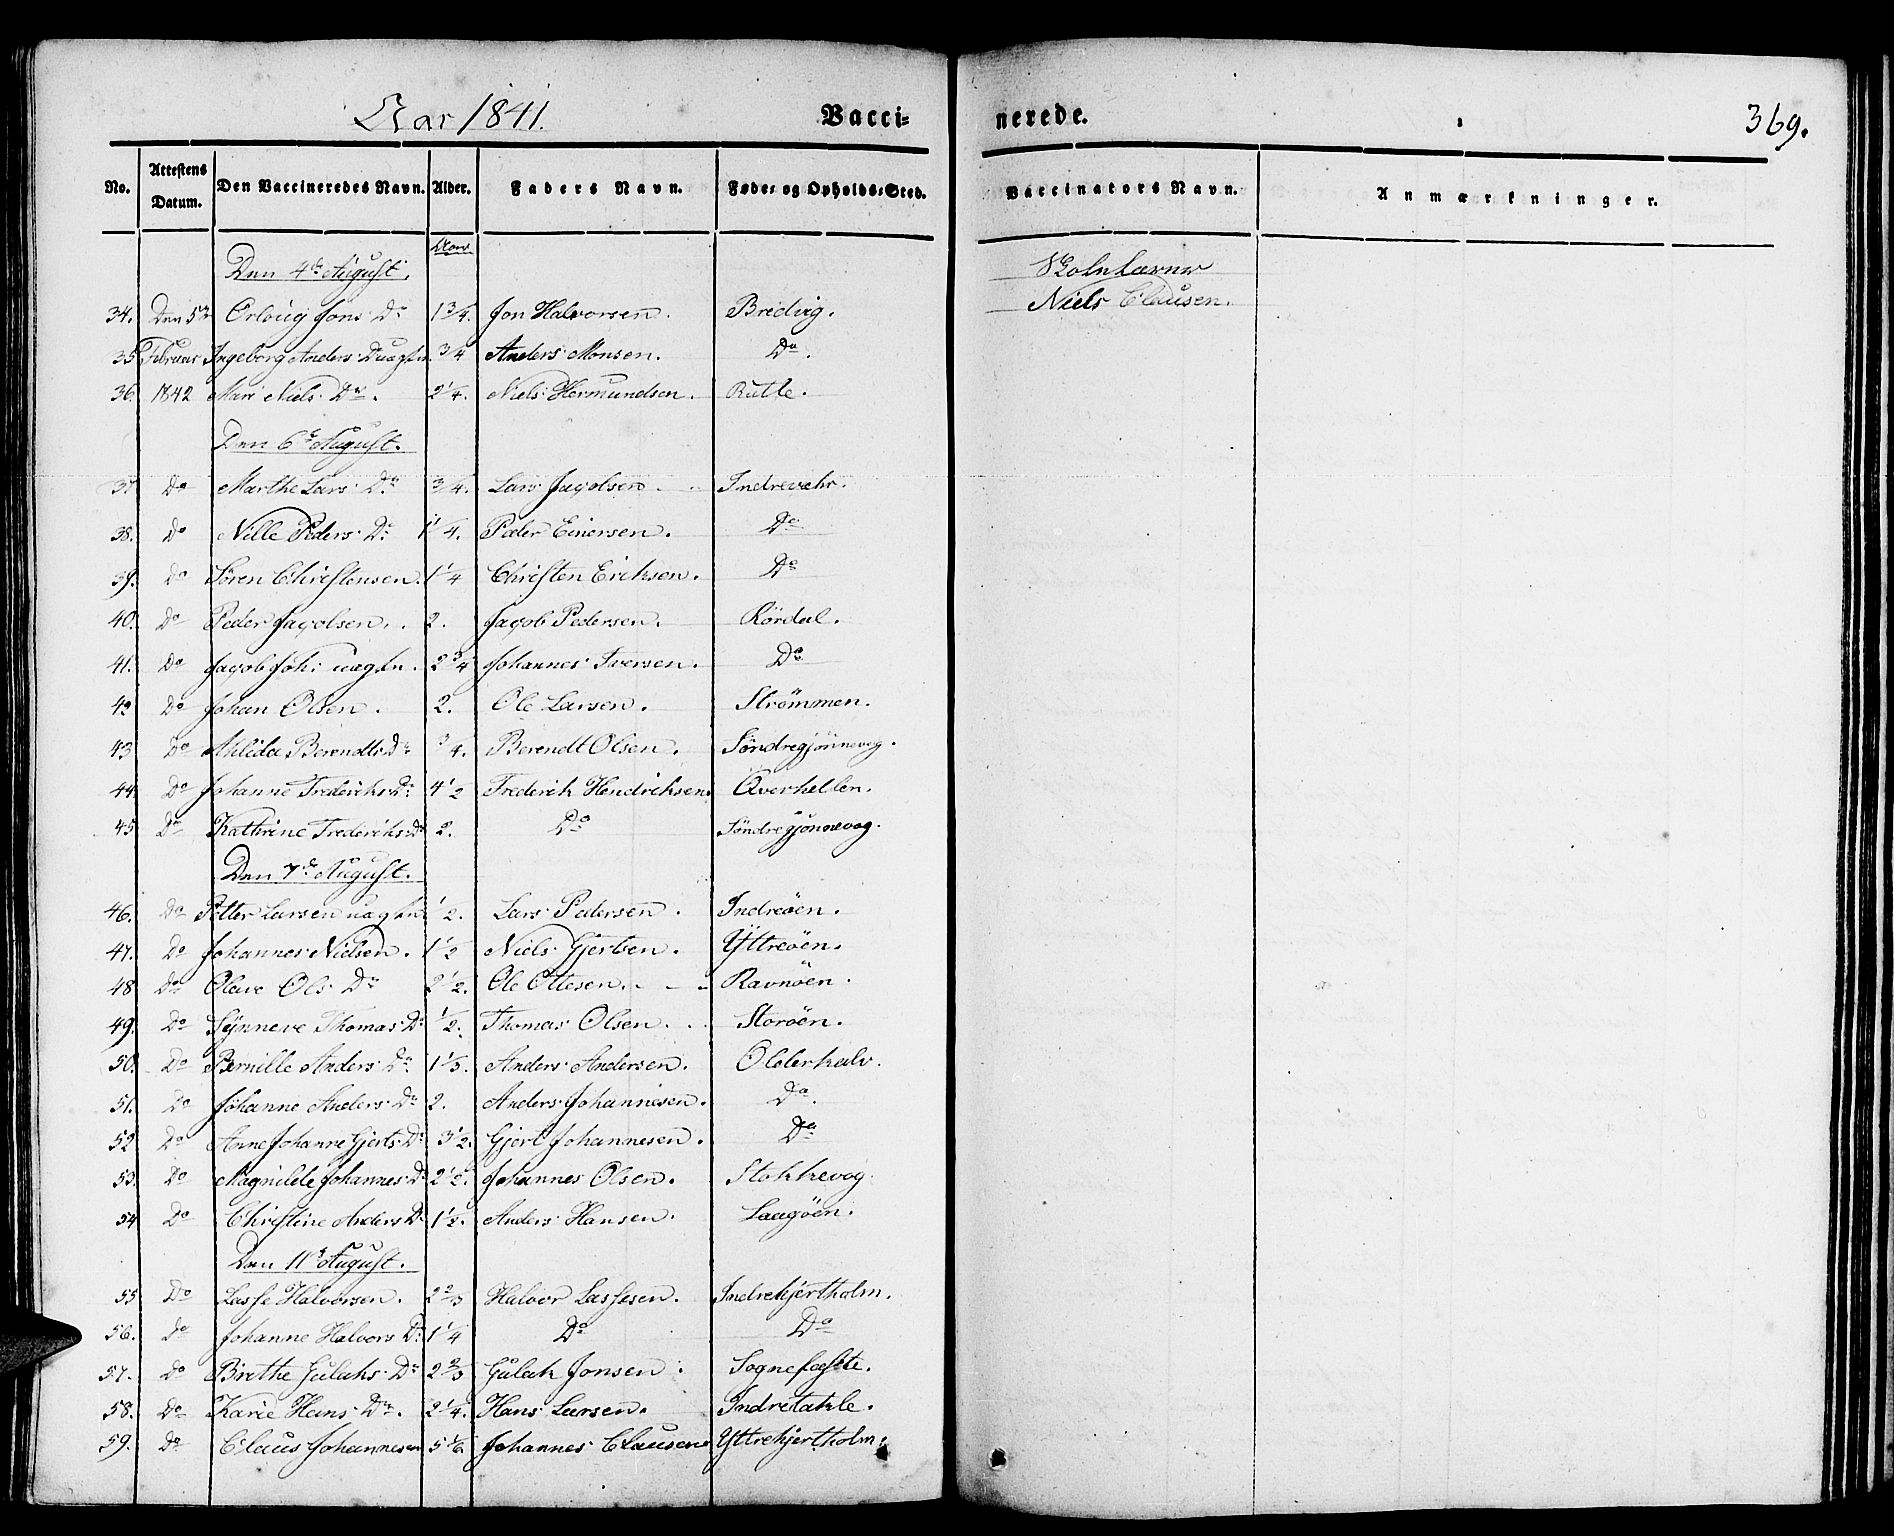 Aar 1841. Vacci- nerede. 369.
No. Attestens Datum. Den Vaccineredes Navn. Alder. Faders Navn. Føde- og Opholds-Sted. Vaccinators Navn. Anmærkninger.
Den 4de August.
Skolelærer
34. Den 5te Jons Dr 1 3/4. Jon Halvorsen. Bredvig. Niels Clausen.
35 Februar Ingeborg Anders 3/4 Anders Monsen. Do.
36. 1842 Mari Niels Dr. 2 1/4. Niels Hermundsen. Rutle.
Den 6te August.
37 Do Marthe Lars Dr 3/4. Lars Jagobsen. Indrevehr.
38. Do Nille Peders Dr 1 1/4. Peder Einersen. Do
39. Do Sören Christensen. 1 1/4 Christen Eriksen. Do
40. Do Peder Jagobsen. 2. Jagob Pedersen. Rördal.
41. Do Jagob Joh: uægten. 2 3/4 Johannes Iversen. Do
42 Do Johan Olsen. 2. Ole Larsen. Strömmen.
43 Do Berendts Dr 3/4. Berendt Olsen. Söndregjönnevog.
44. Do Johanne Frederiks Dr 4 1/2 Frederik Hendriksen. Qverhellen.
45 Do Kathrine Frederiks Dr 2. Do Söndregjönnevog.
Den 7de August.
46. Do Petter Larsen uægten 1/2. Lars Pedersen. Indreöen.
47. Do Johannes Nielsen. 1 1/2 Niels Gjertsen. Yttreöen.
48 Do Olave Ols Dr 2 1/2. Ole Ottesen. Ravnöen.
49. Do Synneve Thomas Dr 1/2. Thomas Olsen. Storöen.
50. Do Pernille Anders Dr 1 1/3. Anders Andersen. Olderkalv.
51. Do Johanne Anders Dr 2. Anders Johannesen. Do.
52 Do Anne Johanne Gjerts Dr 3 1/2. Gjert Johannesen. Do
53. Do Magnilde Johannes Dr 2 1/2. Johannes Olsen. Stokkevog
54 Do Christine Anders Dr 1 1/2. Anders Hansen. Laagöen.
Den 11te August.
55 Do Lasse Halvorsen. 2 2/3 Halvor Lassesen. Indrehjertholm.
56. Do Johanne Halvors Dr 1 1/4 Do Do
57. Do Brethe Gulaks Dr 2 2/3 Gulak Jonsen. Sognefæste.
58. Do Karie Hans Dr. 2 1/4. Hans Larsen. Indretakle.
59. Do Claus Johannesen 5 1/6 Johannes Clausen. Yttrehjertholm.